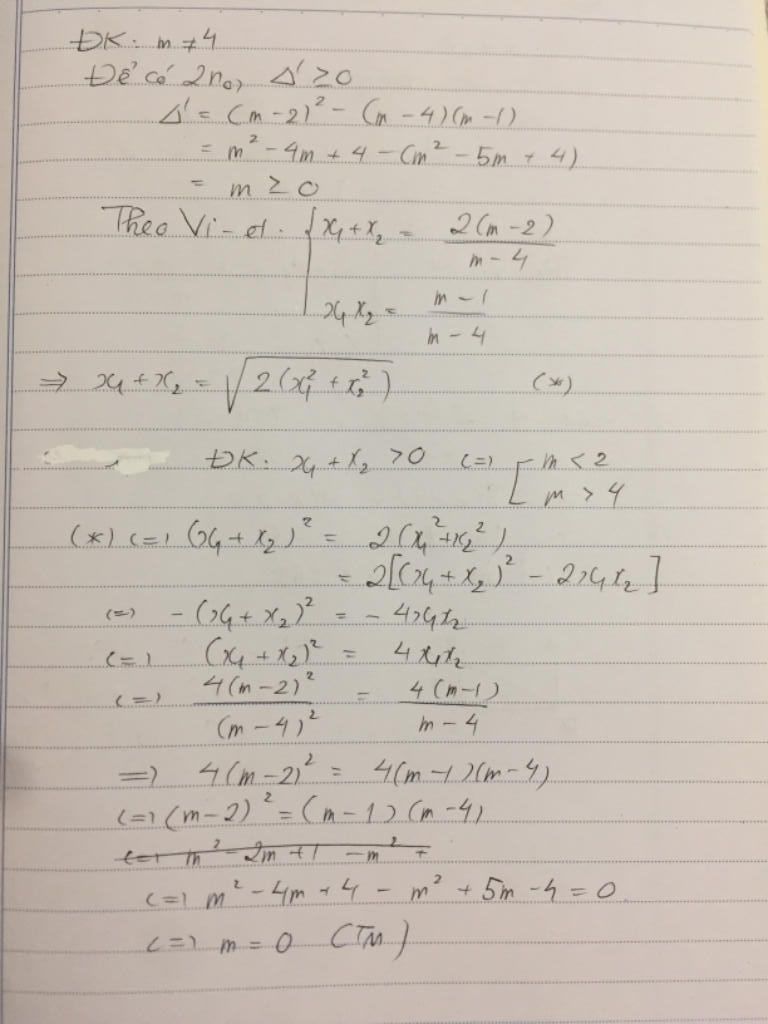 ĐK: m ≠ 4
Để có 2 no, Δ' ≥ 0
Δ' = (m - 2)² - (m - 4)(m - 1)
= m² - 4m + 4 - (m² - 5m + 4)
= m ≥ 0
Theo Vi-et: { x₁ + x₂ = 2(m - 2) / m - 4
x₁x₂ = m - 1 / m - 4
⇒ x₁ + x₂ = √2(x₁² + x₂²) (*)
ĐK: x₁ + x₂ > 0 (=) [ m < 2
m > 4
(*) (=) (x₁ + x₂)² = 2(x₁² + x₂²)
= 2[(x₁ + x₂)² - 2x₁x₂]
(=) -(x₁ + x₂)² = - 4x₁x₂
(=) (x₁ + x₂)² = 4x₁x₂
(=) 4(m - 2)² / (m - 4)² = 4(m - 1) / m - 4
=) 4(m - 2)² = 4(m - 1)(m - 4)
(=) (m - 2)² = (m - 1)(m - 4)
(=) m² - 2m + 1 - m² +
(=) m² - 4m + 4 - m² + 5m - 4 = 0
(=) m = 0 (TM)